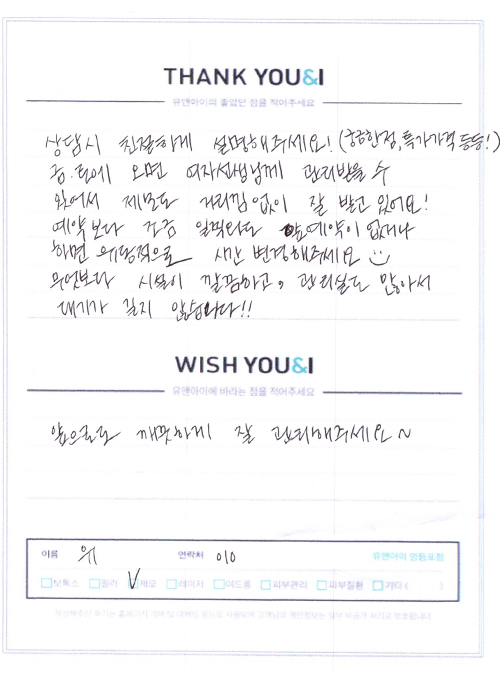 THANK YOU&I
유앤아이의 좋았던 점을 적어주세요
상담시 친절하게 설명해주세요! (궁금한점, 특가가격 등등!)
금.토에 오면 여자선생님께 관리받을 수
있어서 제모도 거리낌없이 잘 받고 있어요!
예약보다 조금 일찍와도 앞예약이 없거나
하면 유동적으로 시간 변경해주세요
무엇보다 시설이 깔끔하고, 관리실도 많아서
대기가 길지 않습니다!!
WISH YOU&I
유앤아이에 바라는 점을 적어주세요
앞으로도 깨끗하게 잘 관리해주세요~
이름 위 연락처 010 유앤아이 영등포점
보톡스 필러 V 제모 레이저 여드름 피부관리 피부질환 기타 ( )